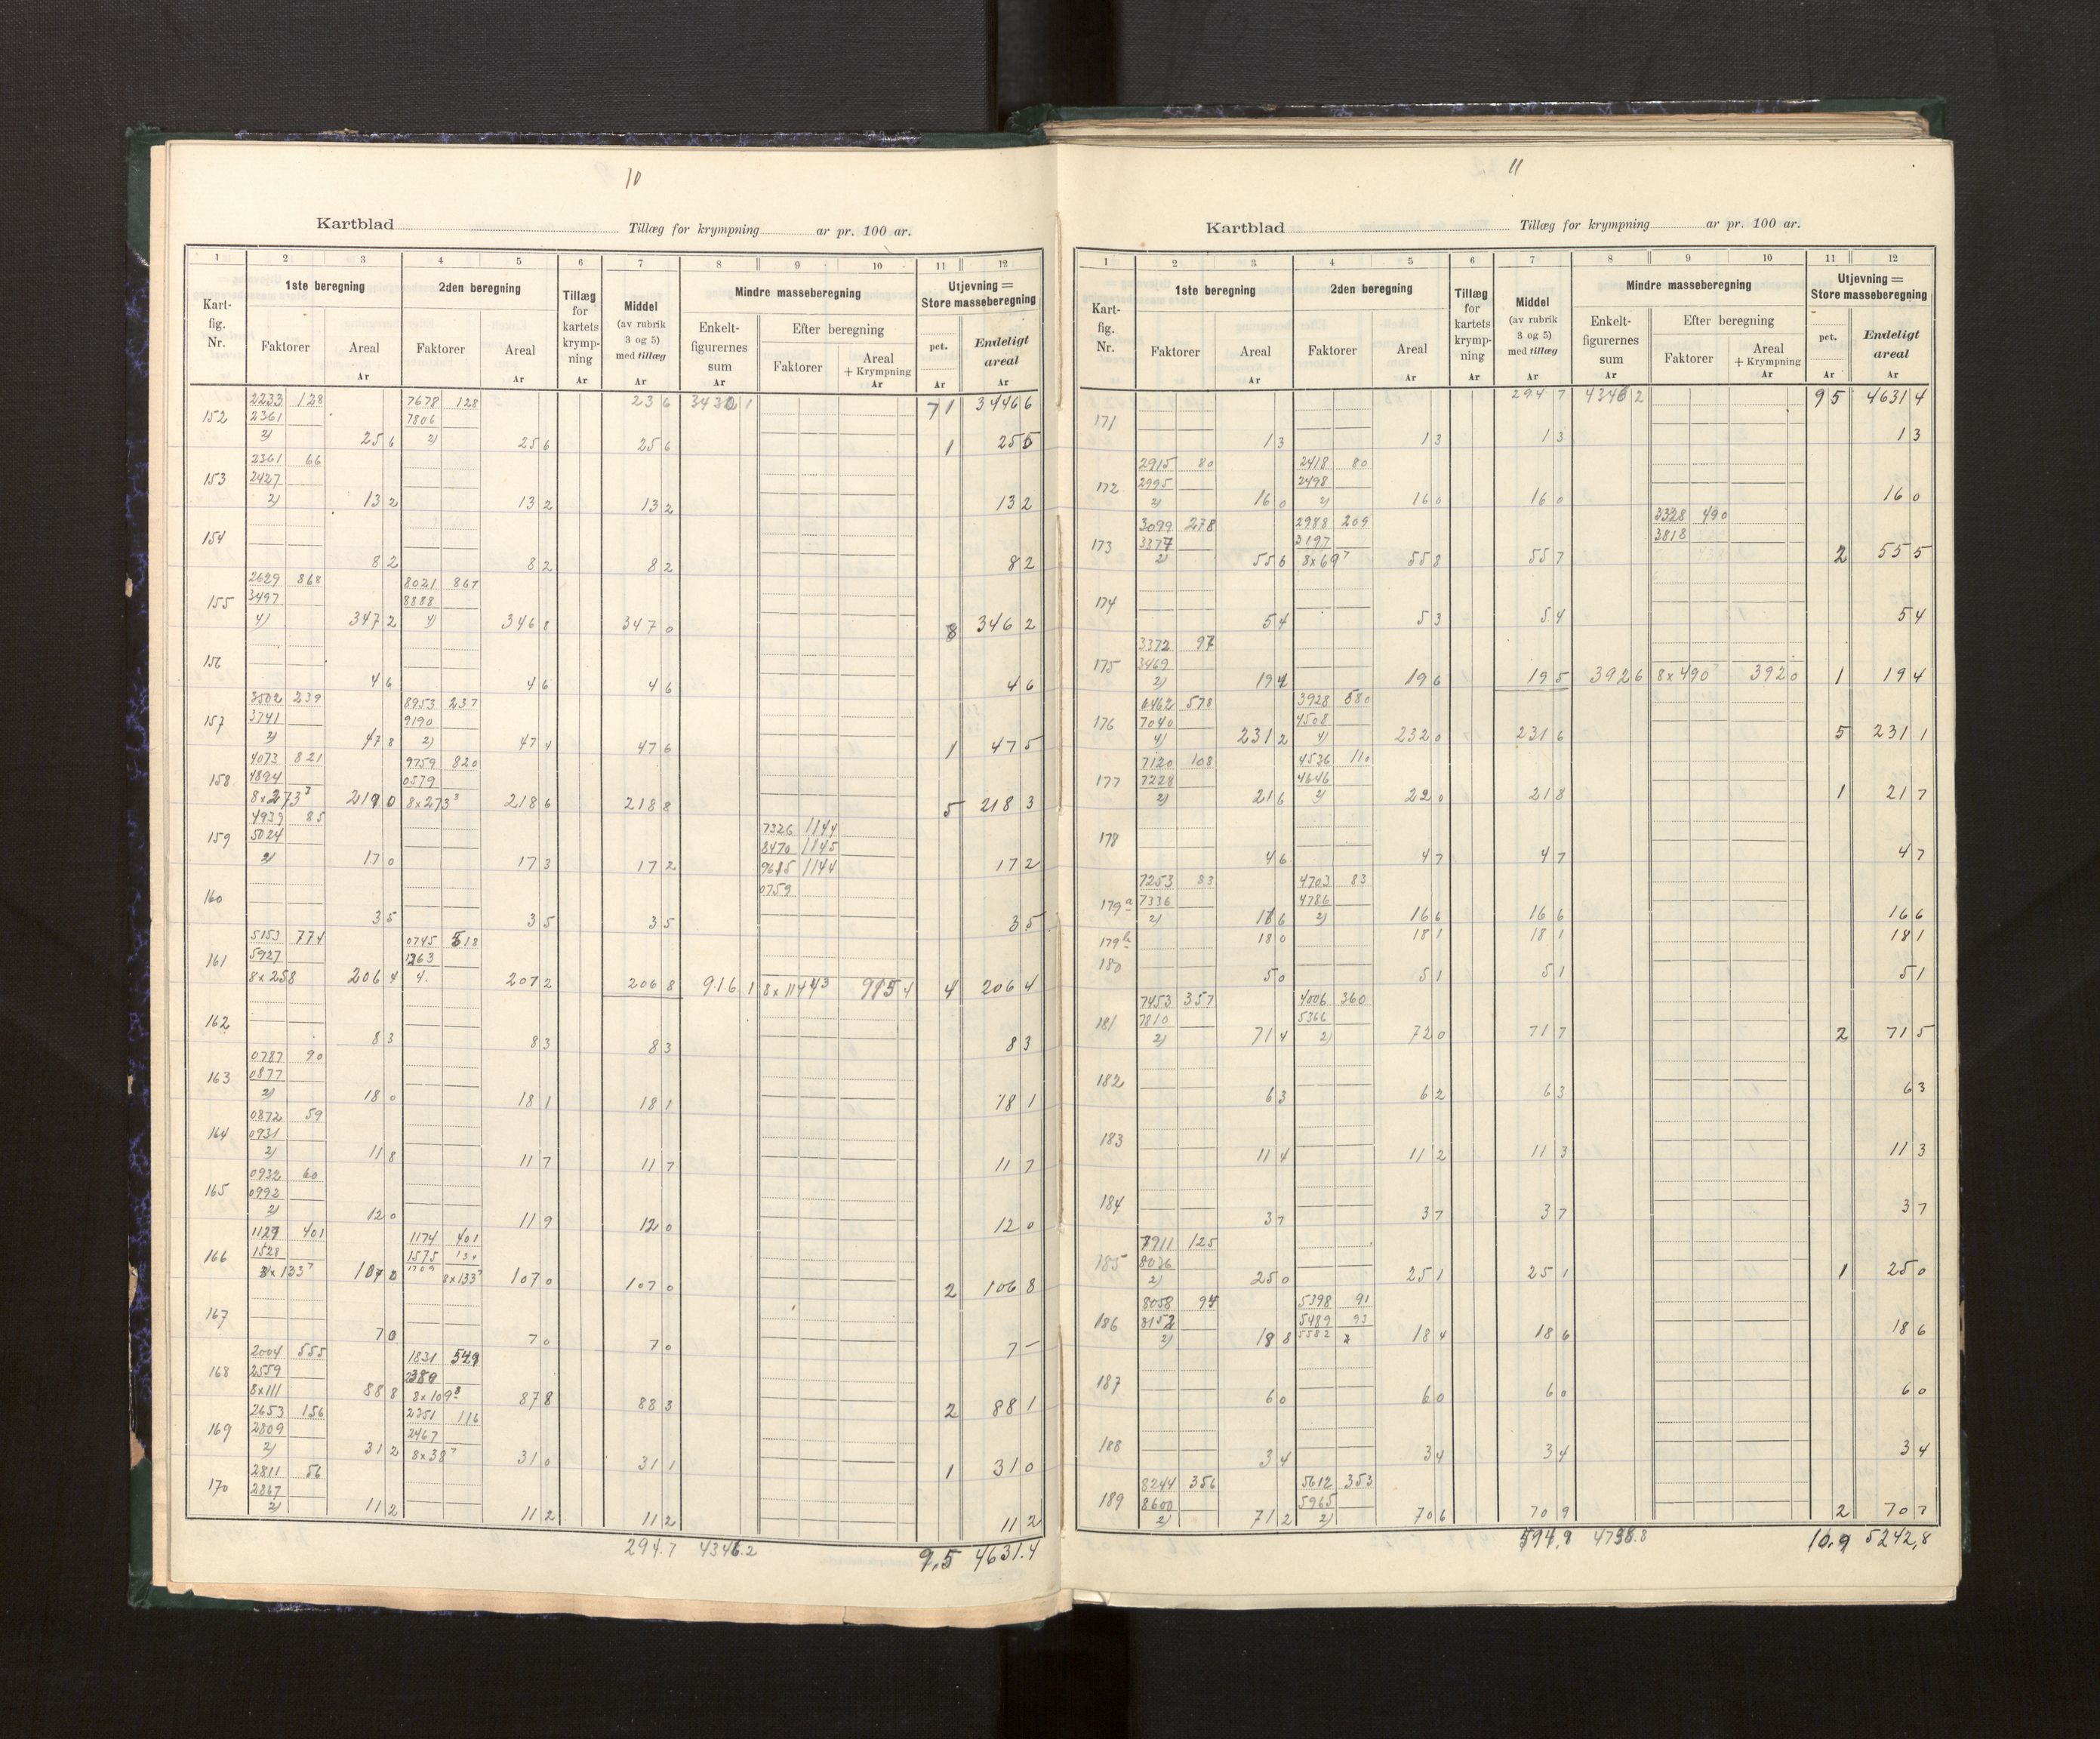 10
Kartblad Tillæg for krympning ar pr. 100 ar.
1 2 3 4 5 6 7 8 9 10 11 12
Kart-fig. Nr. 1ste beregning 2den beregning Tillæg for kartets krymp-ning Middel (av rubrik 3 og 5) med tillæg Mindre masseberegning Utjevning = Store masseberegning
Faktorer Areal Faktorer Areal Enkelt-figurernes sum Efter beregning pct. Endeligt areal
Faktorer Areal + Krympning
Ar Ar Ar Ar Ar Ar Ar Ar
2233 128 7678 128 23 6 71 3446 6
152 2361 7806
2) 25 6 2) 25 6 25 6 1 25 5
2361 66
153 2427
2) 13 2 13 2 13 2 13 2
154
8 2 8 2 8 2 8 2
2629 868 8021 867
155 3497 8888
4) 347 2 4) 346 8 347 0 8 346 2
156
4 6 4 6 4 6 4 6
3502 239 8953 237
157 3741 9190
2) 47 8 2) 47 4 47 6 1 47 5
4073 821 9759 820
158 4894 0579
8x273³ 219 0 8x273³ 218 6 218 8 5 218 3
4939 85 7326 1144
159 5024 8470 1145
2) 17 0 17 3 17 2 9615 1144 17 2
160 0759
3 5 3 5 3 5 3 5
5153 774 0745 518
161 5927 1263
8x258 206 4 4. 207 2 206 8 916 1 8x1144³ 915 4 4 206 4
162
8 3 8 3 8 3 8 3
0787 90
163 0877
2) 18 0 18 1 18 1 18 1
0872 59
164 0931
2) 11 8 11 7 11 7 11 7
0932 60
165 0992
2) 12 0 11 9 12 0 12 0
1127 401 1174 401
166 1528 1575 134
8x133⁷ 107 0 1709 8x133⁷ 107 0 107 0 2 106 8
167
7 0 7 0 7 0 7 –
2004 555 1831 549
168 2559 2380
8x111 88 8 8x109⁸ 87 8 88 3 2 88 1
2653 156 2351 116
169 2809 2467
2) 31 2 8x38⁷ 31 0 31 1 1 31 0
2811 56
170 2867
2) 11 2 11 2 11 2 11 2
294.7 4346.2 9,5 4631.4
11
Kartblad Tillæg for krympning ar pr. 100 ar.
1 2 3 4 5 6 7 8 9 10 11 12
Kart-fig. Nr. 1ste beregning 2den beregning Tillæg for kartets krymp-ning Middel (av rubrik 3 og 5) med tillæg Mindre masseberegning Utjevning = Store masseberegning
Faktorer Areal Faktorer Areal Enkelt-figurernes sum Efter beregning pct. Endeligt areal
Faktorer Areal + Krympning
Ar Ar Ar Ar Ar Ar Ar Ar
294 7 4346 2 9 5 4631 4
171
1 3 1 3 1 3 1 3
2915 80 2418 80
172 2995 2498
2) 16 0 2) 16 0 16 0 16 0
3099 278 2988 209 3328 490
173 3377 3197 3818
2) 55 6 8x69⁷ 55 8 55 7 2 55 5
174
5 4 5 3 5.4 5 4
3372 97
175 3469
2) 19 4 19 6 19 5 392 6 8x490 392 0 1 19 4
6462 578 3928 580
176 7040 4508
4) 231 2 4) 232 0 231 6 5 231 1
7120 108 4536 110
177 7228 4646
2) 21 6 2) 22 0 21 8 1 21 7
178
4 6 4 7 4 7 4 7
7253 83 4703 83
179a 7336 4786
2) 16 6 2) 16 6 16 6 16 6
179b 18 0 18 1 18 1 18 1
180
5 0 5 1 5 1 5 1
7453 357 360
181 7810 5366
2) 71 4 2) 72 0 71 7 2 71 5
182
6 3 6 2 6 3 6 3
183
11 4 11 2 11 3 11 3
184
3 7 3 7 3 7 3 7
7911 125
185 8036
2) 25 0 25 1 25 1 1 25 0
8058 94 5398 91
186 8152 5489 93
2) 18 8 5582 2 18 4 18 6 18 6
187
6 0 6 0 6 0 6 0
188
3 4 3 4 3 4 3 4
8244 356 5612 353
189 8600 5965
2) 71 2 2) 70 6 70 9 2 70 7
594,9 4738.8 10.9 5242,8